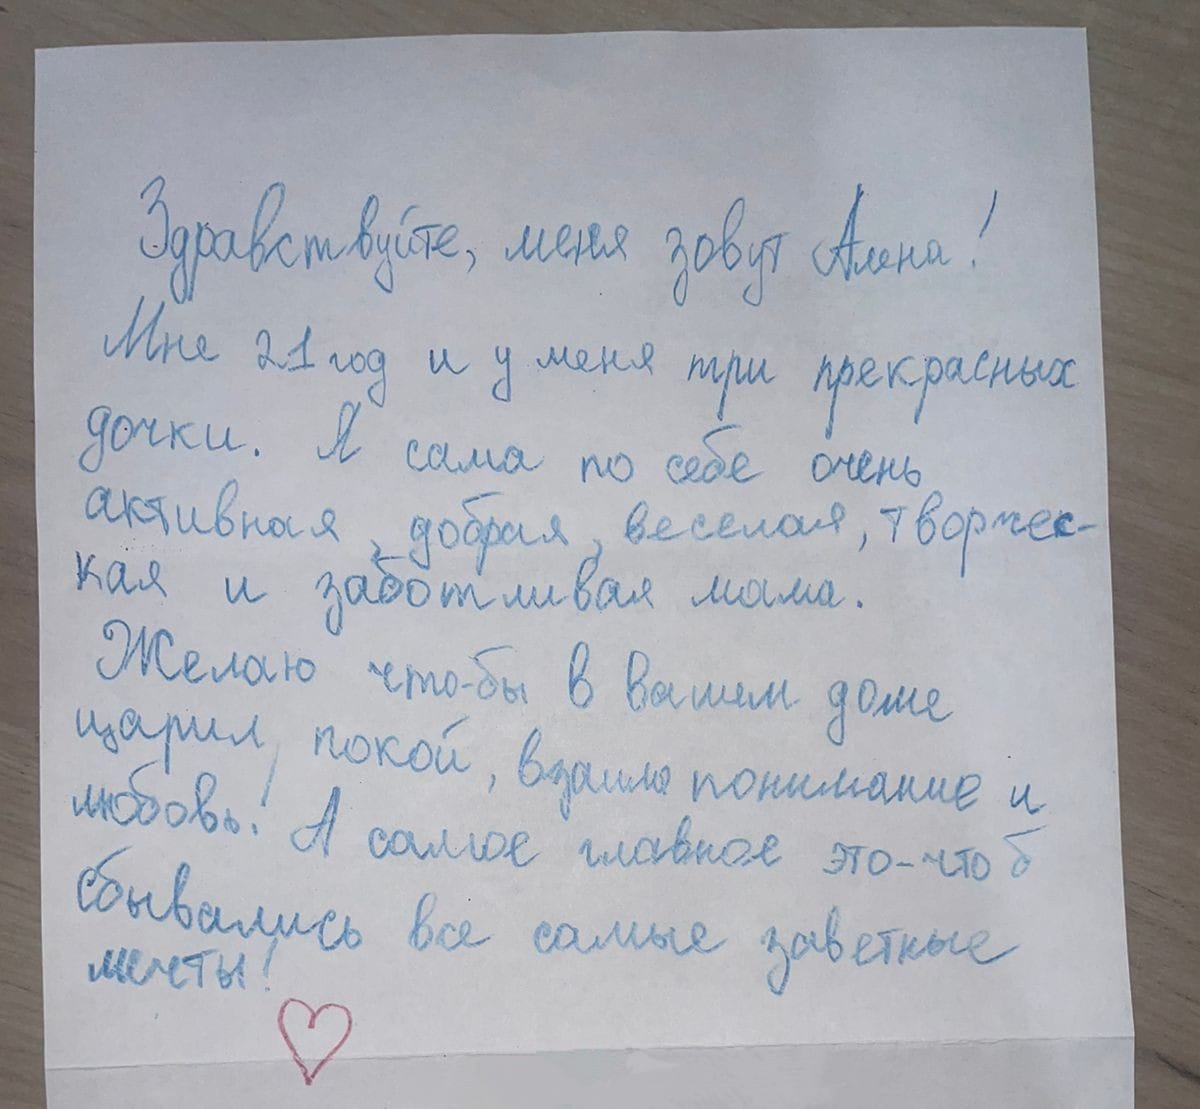 Здравствуйте, меня зовут Алена!
Мне 21 год и у меня три прекрасных
дочки. Я сама по себе очень
активная, добрая, веселая, творчес-
кая и заботливая мама.
Желаю что-бы в вашем доме
царил, покой, взаимопонимание и
любовь! А самое главное это-что б
сбывались все самые заветные
мечты!